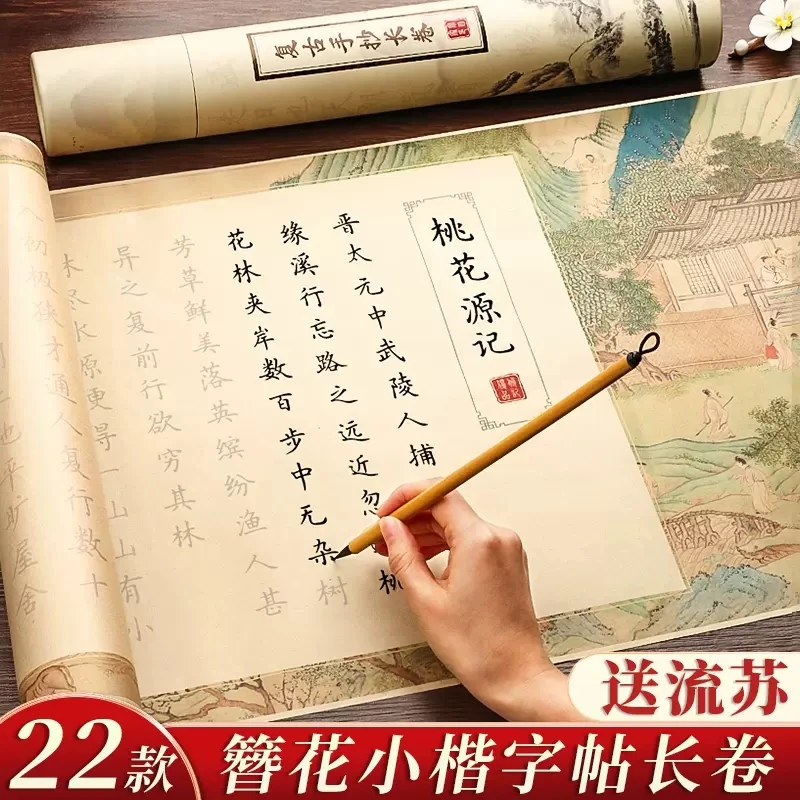 复古手抄长卷
桃花源记
晋太元中武陵人捕
缘溪行忘路之远近忽 桃
花林夹岸数百步中无杂树
芳草鲜美落英缤纷渔人甚
异之复前行欲穷其林
林尽水源便得一山山有小
初极狭才通人复行数十
地平旷屋舍
送流苏
22款
簪花小楷字帖长卷